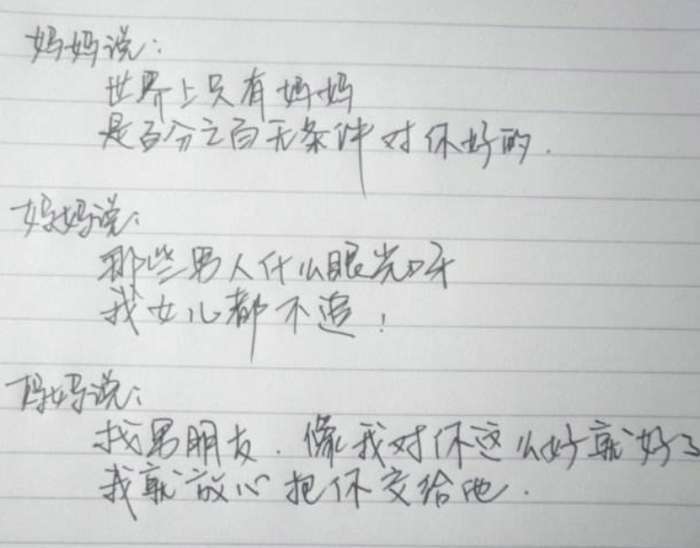 妈妈说：
世界上只有妈妈
是百分之百无条件对你好的.
妈妈说：
那些男人什么眼光呀
我女儿都不追！
妈妈说：
找男朋友.像我对你这么好就好了
我就放心把你交给他.